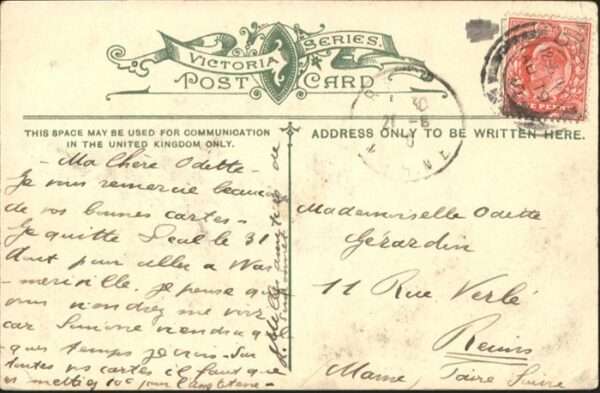 VICTORIA SERIES.
POST CARD
THIS SPACE MAY BE USED FOR COMMUNICATION
IN THE UNITED KINGDOM ONLY.
ADDRESS ONLY TO BE WRITTEN HERE.
Ma Chère Odette -
Je vous remercie beaucoup
de vos bonnes cartes -
Je quitte Deal le 31
Aout pour aller a
je pense que
vous viendrez me voir
car Simone viendra
que temps je suis - Sur
toutes vos cartes il faut que
vs mettiez 10c pour l'angleterre -
Mademoiselle Odette
Gérardin
11 Rue Verlé
Reims
Marne, Faire Suivre